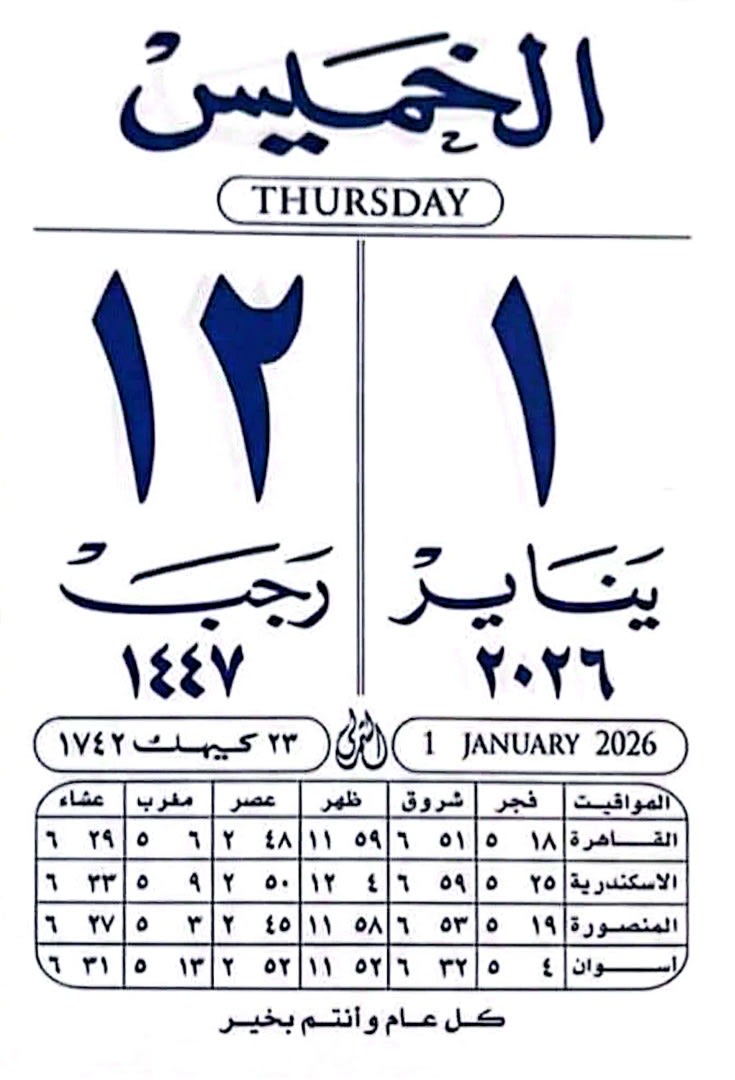 الخميس
THURSDAY
١ ١٢
يناير رجب
٢٠٢٦ ١٤٤٧
1 JANUARY 2026 ٢٣ كيهك ١٧٤٢
المواقيت فجر شروق ظهر عصر مغرب عشاء
القاهرة ١٨ ٥ ٥١ ٦ ٥٩ ١١ ٤٨ ٢ ٦ ٥ ٢٩ ٦
الاسكندرية ٢٥ ٥ ٥٩ ٦ ٤ ١٢ ٥٠ ٢ ٩ ٥ ٣٣ ٦
المنصورة ١٩ ٥ ٥٣ ٦ ٥٨ ١١ ٤٥ ٢ ٣ ٥ ٢٧ ٦
أسوان ٤ ٥ ٣٢ ٦ ٥٢ ١١ ٥٢ ٢ ١٣ ٥ ٣١ ٦
كل عام وأنتم بخير